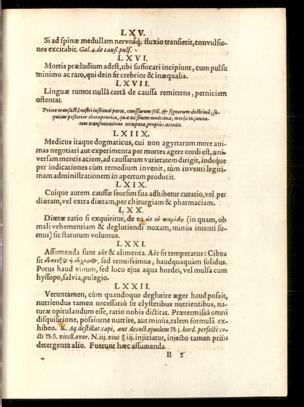 LXV.
Si ad spinæ medullam nervosq; fluxio transierit, convulsio-
nes excitabit. Gal. 4. de caus. puls.
LXVI.
Mortis præludium adest, ubi suffocari incipiunt, cum pulsu
minimo ac raro, qui dein fit crebrior & inæqualis.
LXVII.
Linguæ tumor nullâ certâ de caussa remittens, perniciem
ostentat.
Priore tractatus nostri instituti parte, caussarum scil. & signorum doctrinâ, se-
quitur posterior therapeutica,
transmutatione
LXIIX.
Medicus itaque dogmaticus, cui non agyrtarum more ani-
mas negotiari aut experimenta per mortes agere cordi est, uni-
versam mentis aciem, ad caussarum varietatem dirigit, indeque
per indicationes cùm remedium invenit, tùm inventi legiti-
mam administrationem in apertum producit.
LXIX.
Cuique autem caussæ seorsim sua adhibetur curatio, vel per
diætam, vel extra diætam, per chirurgiam & pharmaciam.
LXX.
Diætæ ratio si exquiritur, de ea (in quam, ob
mali vehementiam & deglutiendi noxam, minùs intenti su-
mus) sic statutum volumus.
LXXI.
Assumenda sunt aër & alimenta. Aër sit temperatus: Cibus
sit sed tenuissimus, haudquaquam solidus.
Potus haud vinum, sed loco ejus aqua hordei, vel mulsa cum
hyssopo, salvia, pulegio.
LXXII.
Veruntamen, cùm quandoque deglutire æger haud possit,
nutriendus tamen necessariò sit clysteribus nutrientibus, na-
turæ opitulandum esse, ratio nobis dictitat. Prætermissâ omni
disquisitione, possintne nutrire, aut minùs, talem formulā ex-
hibeo. Aq. destillat. capi, aut decoct. ejusdem
injiciatur, injecto tamen priùs
detergente alio. Fuerunt hæc assumenda.
B 3